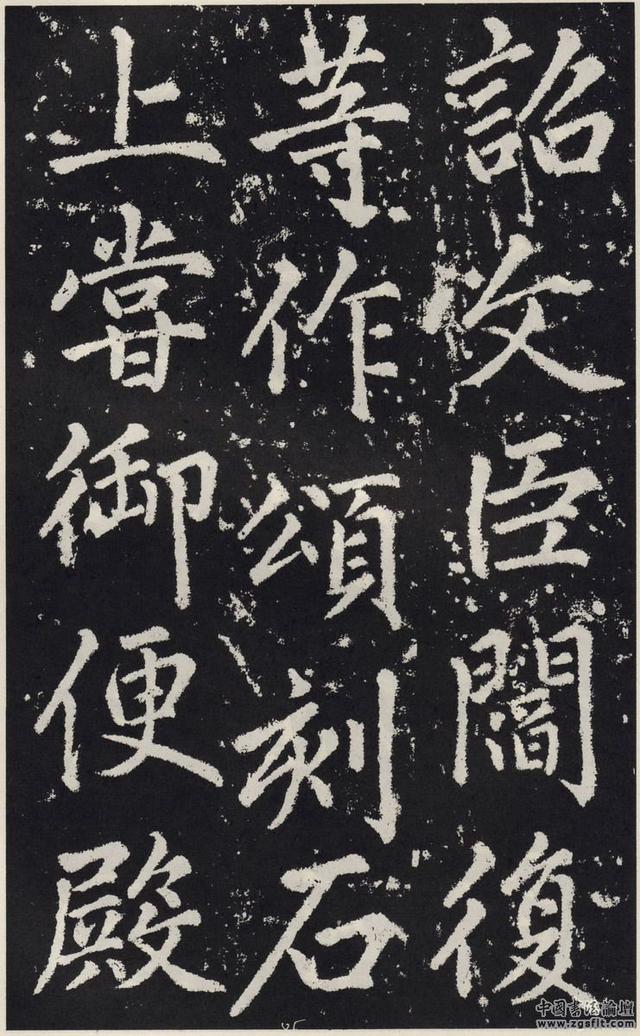 詔文臣閻復
等作頌刻石
上嘗御便殿
中国書法論壇
www.zgsflt.com